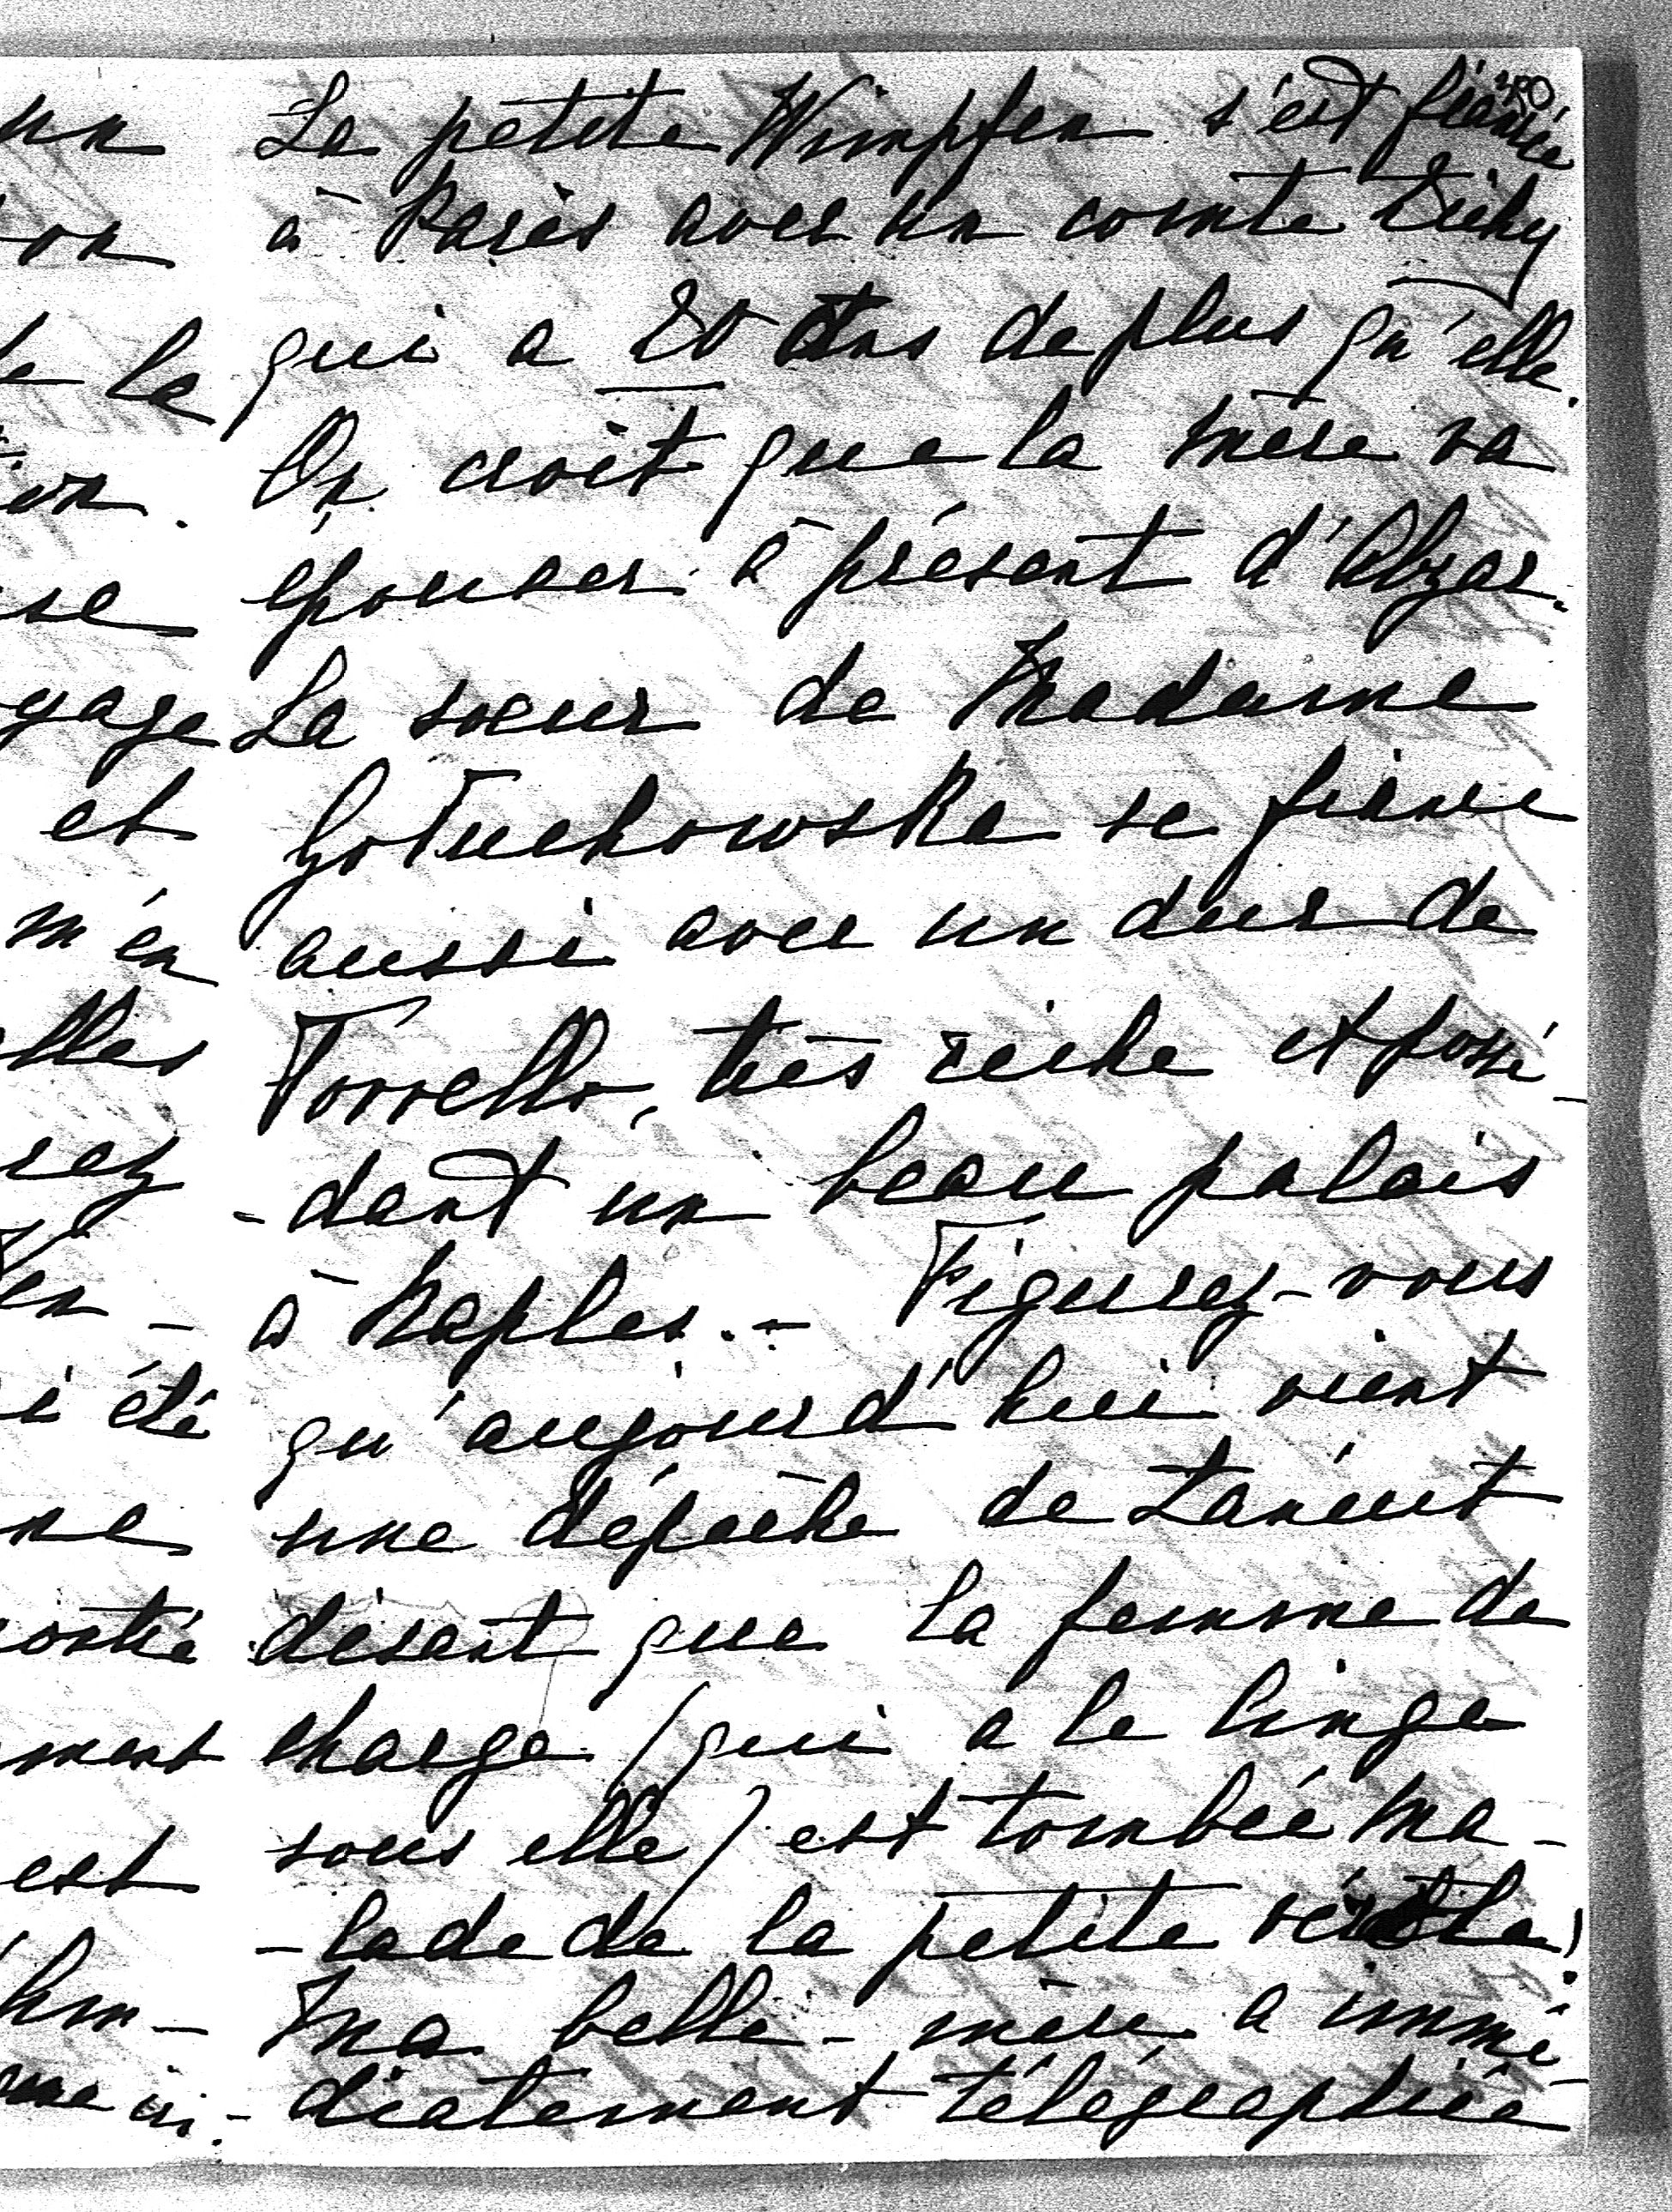 La petite Wimpfen s'est fiancée
à Paris avec un comte Zichy
qui a 20 ans de plus qu'elle.
On croit que la mère va
épouser à présent d'Abzac.
La soeur de Madame
Gołuchowska se fiance
aussi avec un duc de
très riche et possé-
-dant un beau palais
à Naples. - Figurez-vous
qu'aujourd'hui vient
une dépêche de Łańcut
disant que la femme de
charge (qui a le linge
sous elle) est tombée ma-
-lade de la petite vérole!
Ma belle-mère a immé-
-diatement télégraphié